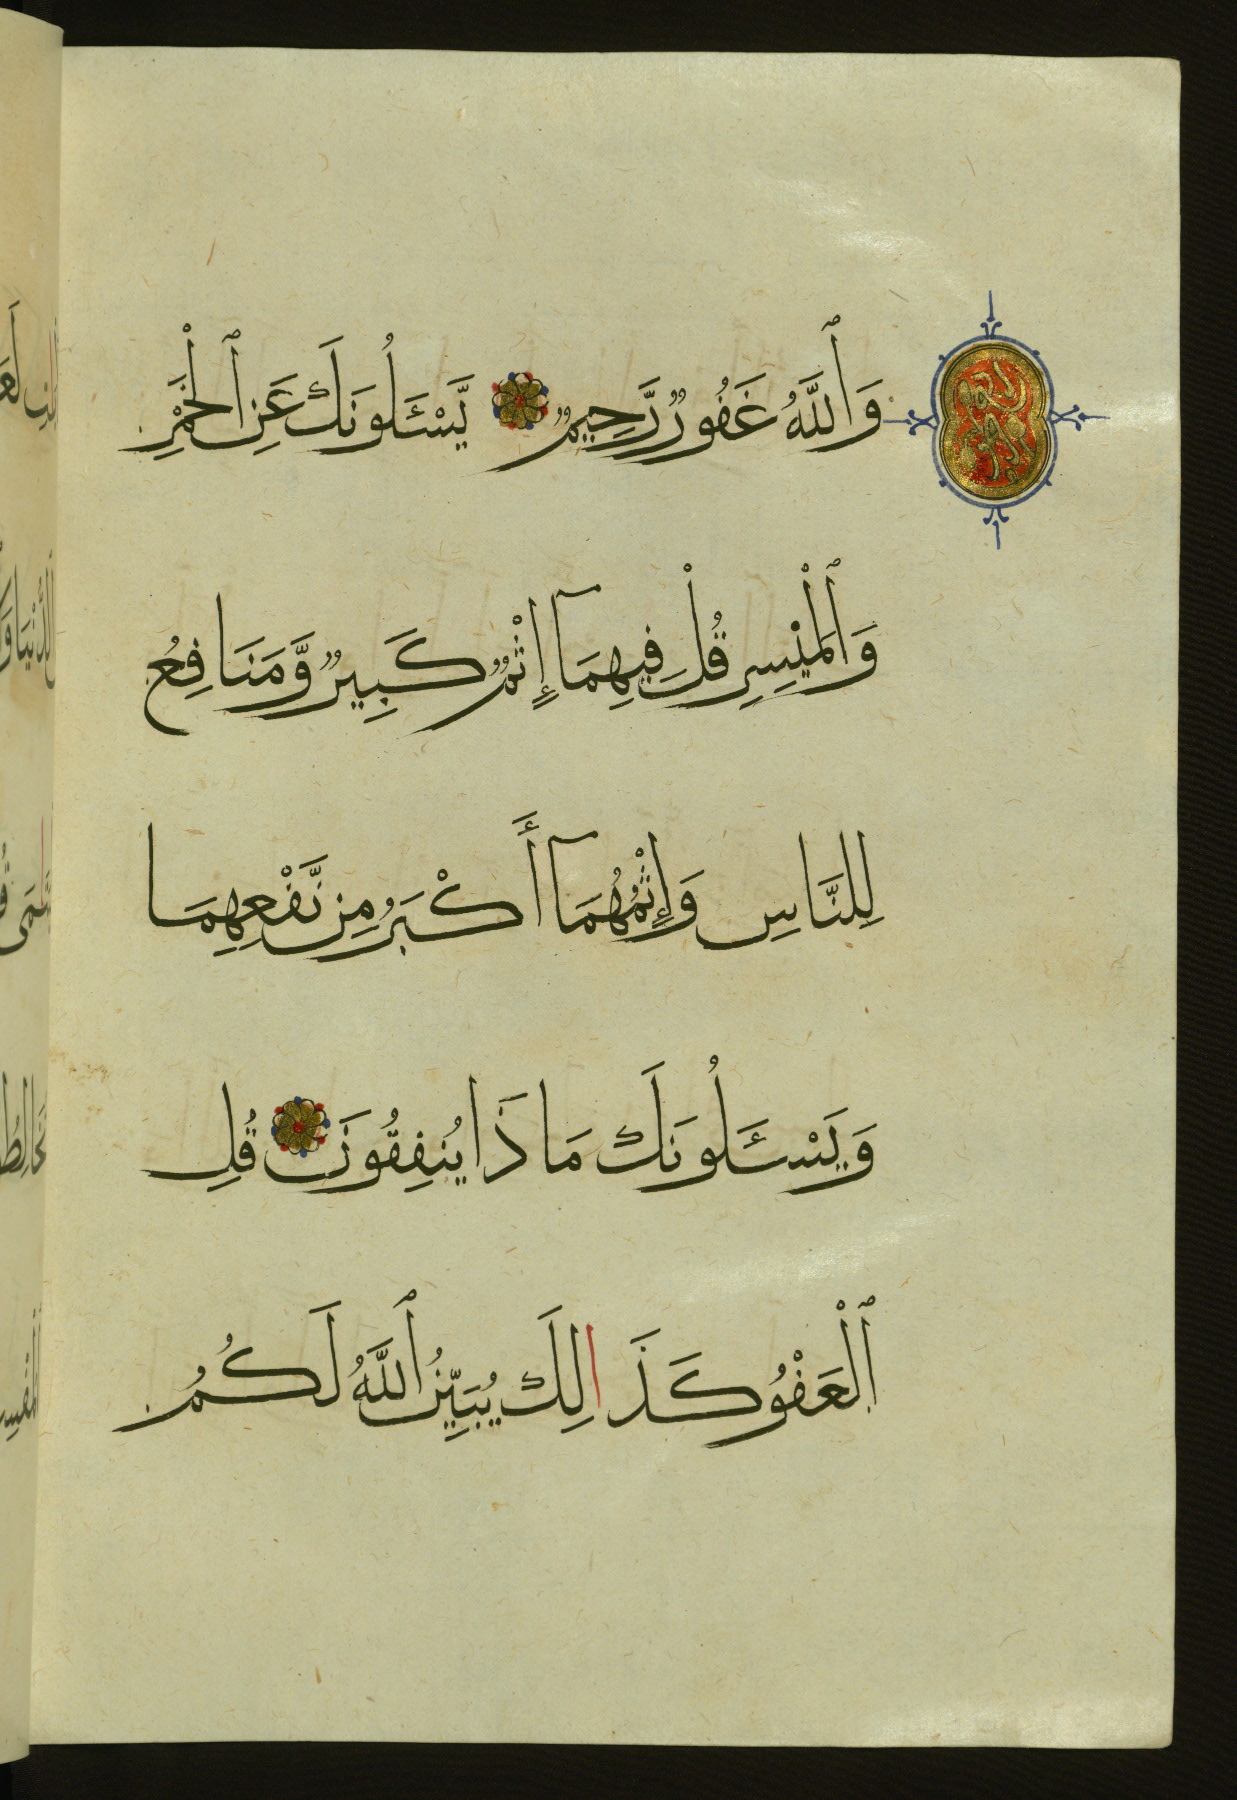 وَٱللَّهُ غَفُورٌ رَّحِيمٌ يَّسْـَٔلُونَكَ عَنِ ٱلْخَمْرِ
وَٱلْمَيْسِرِ قُلْ فِيهِمَآ إِثْمٌ كَبِيرٌ وَّمَنَافِعُ
لِلنَّاسِ وَإِثْمُهُمَآ أَكْبَرُ مِن نَّفْعِهِمَا
وَيَسْـَٔلُونَكَ مَاذَا يُنفِقُونَ قُلِ
ٱلْعَفْوُ كَذَالِكَ يُبَيِّنُ ٱللَّهُ لَكُمُ